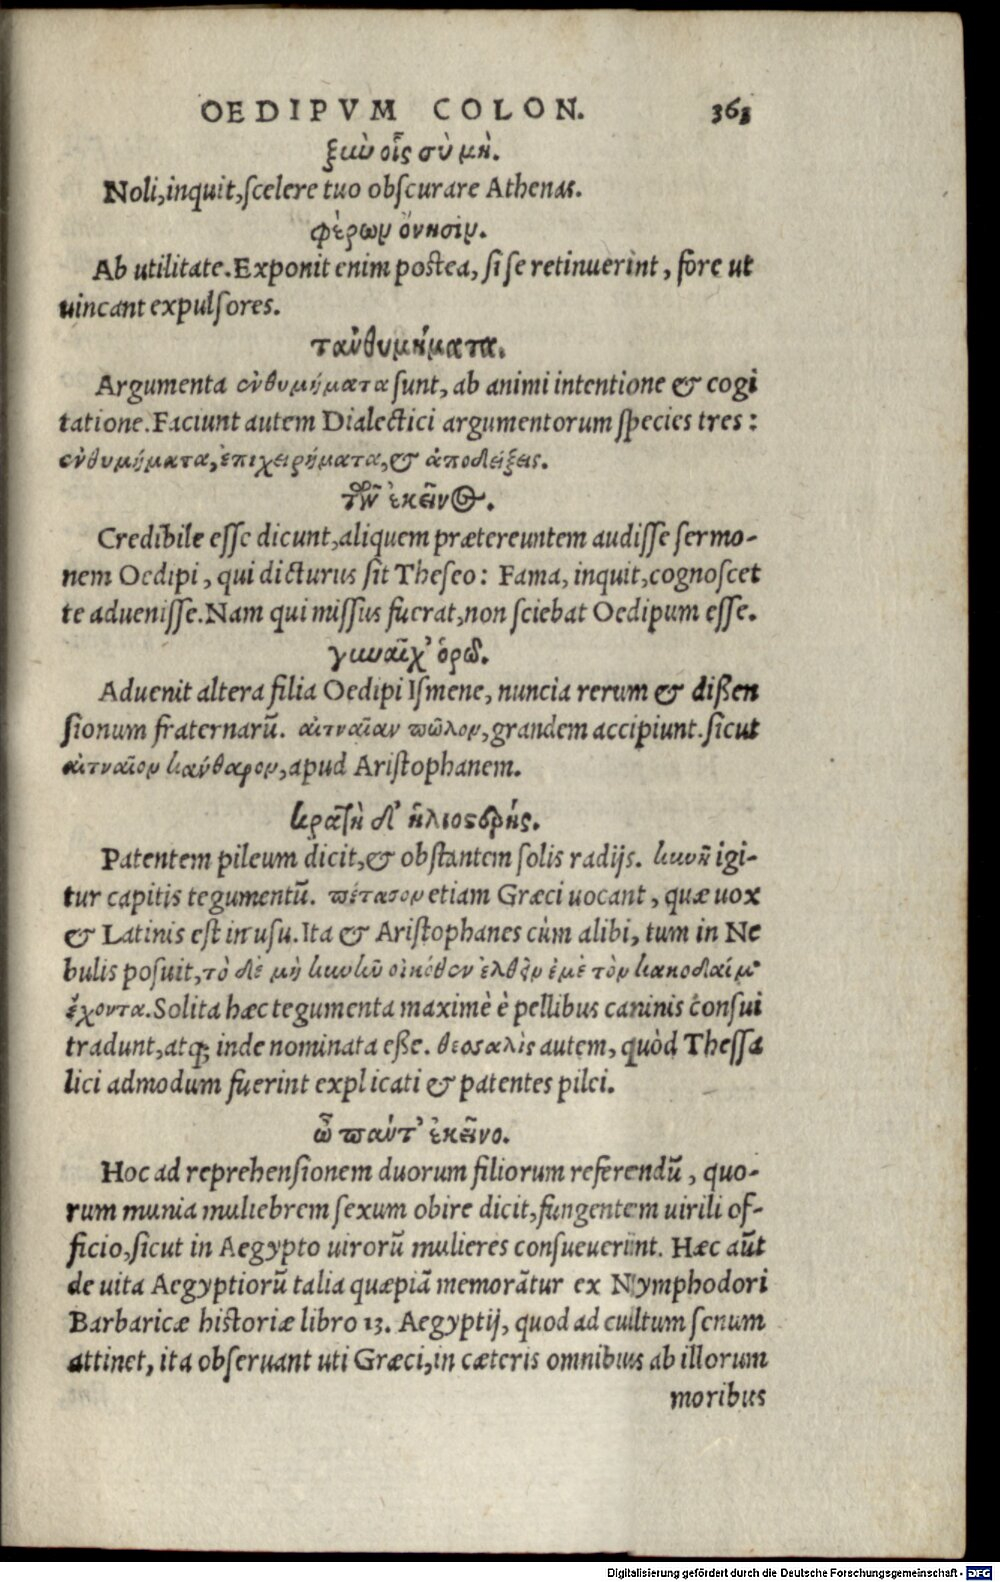 OEDIPVM COLON. 363
ξὺν οἷς σὺ μὴ.
Noli,inquit,scelere tuo obscurare Athenas.
φέρων ὄνησιν.
Ab utilitate.Exponit enim postea, si se retinuerint, fore ut
uincant expulsores.
τἀνθυμήματα.
Argumenta ἐνθυμήματα sunt, ab animi intentione & cogi
tatione.Faciunt autem Dialectici argumentorum species tres:
ἐνθυμήματα,ἐπιχειρήματα,& ἀποδείξεις.
ἐκεῖνος.
Credibile esse dicunt,aliquem prætereuntem audisse sermo-
nem Oedipi, qui dicturus sit Theseo: Fama, inquit,cognoscet
te aduenisse.Nam qui missus fuerat,non sciebat Oedipum esse.
γυναῖχ᾽ ὁρῶ.
Aduenit altera filia Oedipi Ismene, nuncia rerum & dißen
sionum fraternarũ. αἰτναίαν πῶλον,grandem accipiunt.sicut
αἰτναῖον κάνθαρον,apud Aristophanem.
κρατὶ δ᾽ ἡλιοστερής.
Patentem pileum dicit,& obstantem solis radijs. κυνῆ igi-
tur capitis tegumentũ. πέτασον etiam Græci uocant, quæ uox
& Latinis est in usu.Ita & Aristophanes cùm alibi, tum in Ne
bulis posuit,τὸ δὲ μὴ κυνῆν οἴκοθεν ἐλθεῖν ἐμὲ τὸν κακοδαίμ᾽
ἔχοντα.Solita hæc tegumenta maximè è pellibus caninis consui
tradunt,atq; inde nominata eße. θεσσαλὶς autem, quòd Thessa
lici admodum fuerint explicati & patentes pilei.
ὦ πάντ᾽ ἐκείνο.
Hoc ad reprehensionem duorum filiorum referendũ, quo-
rum munia muliebrem sexum obire dicit,fungentem uirili of-
ficio,sicut in Aegypto uirorũ mulieres consueuerunt. Hæc aũt
de uita Aegyptiorũ talia quæpiã memorãtur ex Nymphodori
Barbaricæ historiæ libro 13. Aegyptij, quod ad cultum senum
attinet, ita obseruant uti Græci,in cæteris omnibus ab illorum
moribus
Digitalisierung gefördert durch die Deutsche Forschungsgemeinschaft - DFG